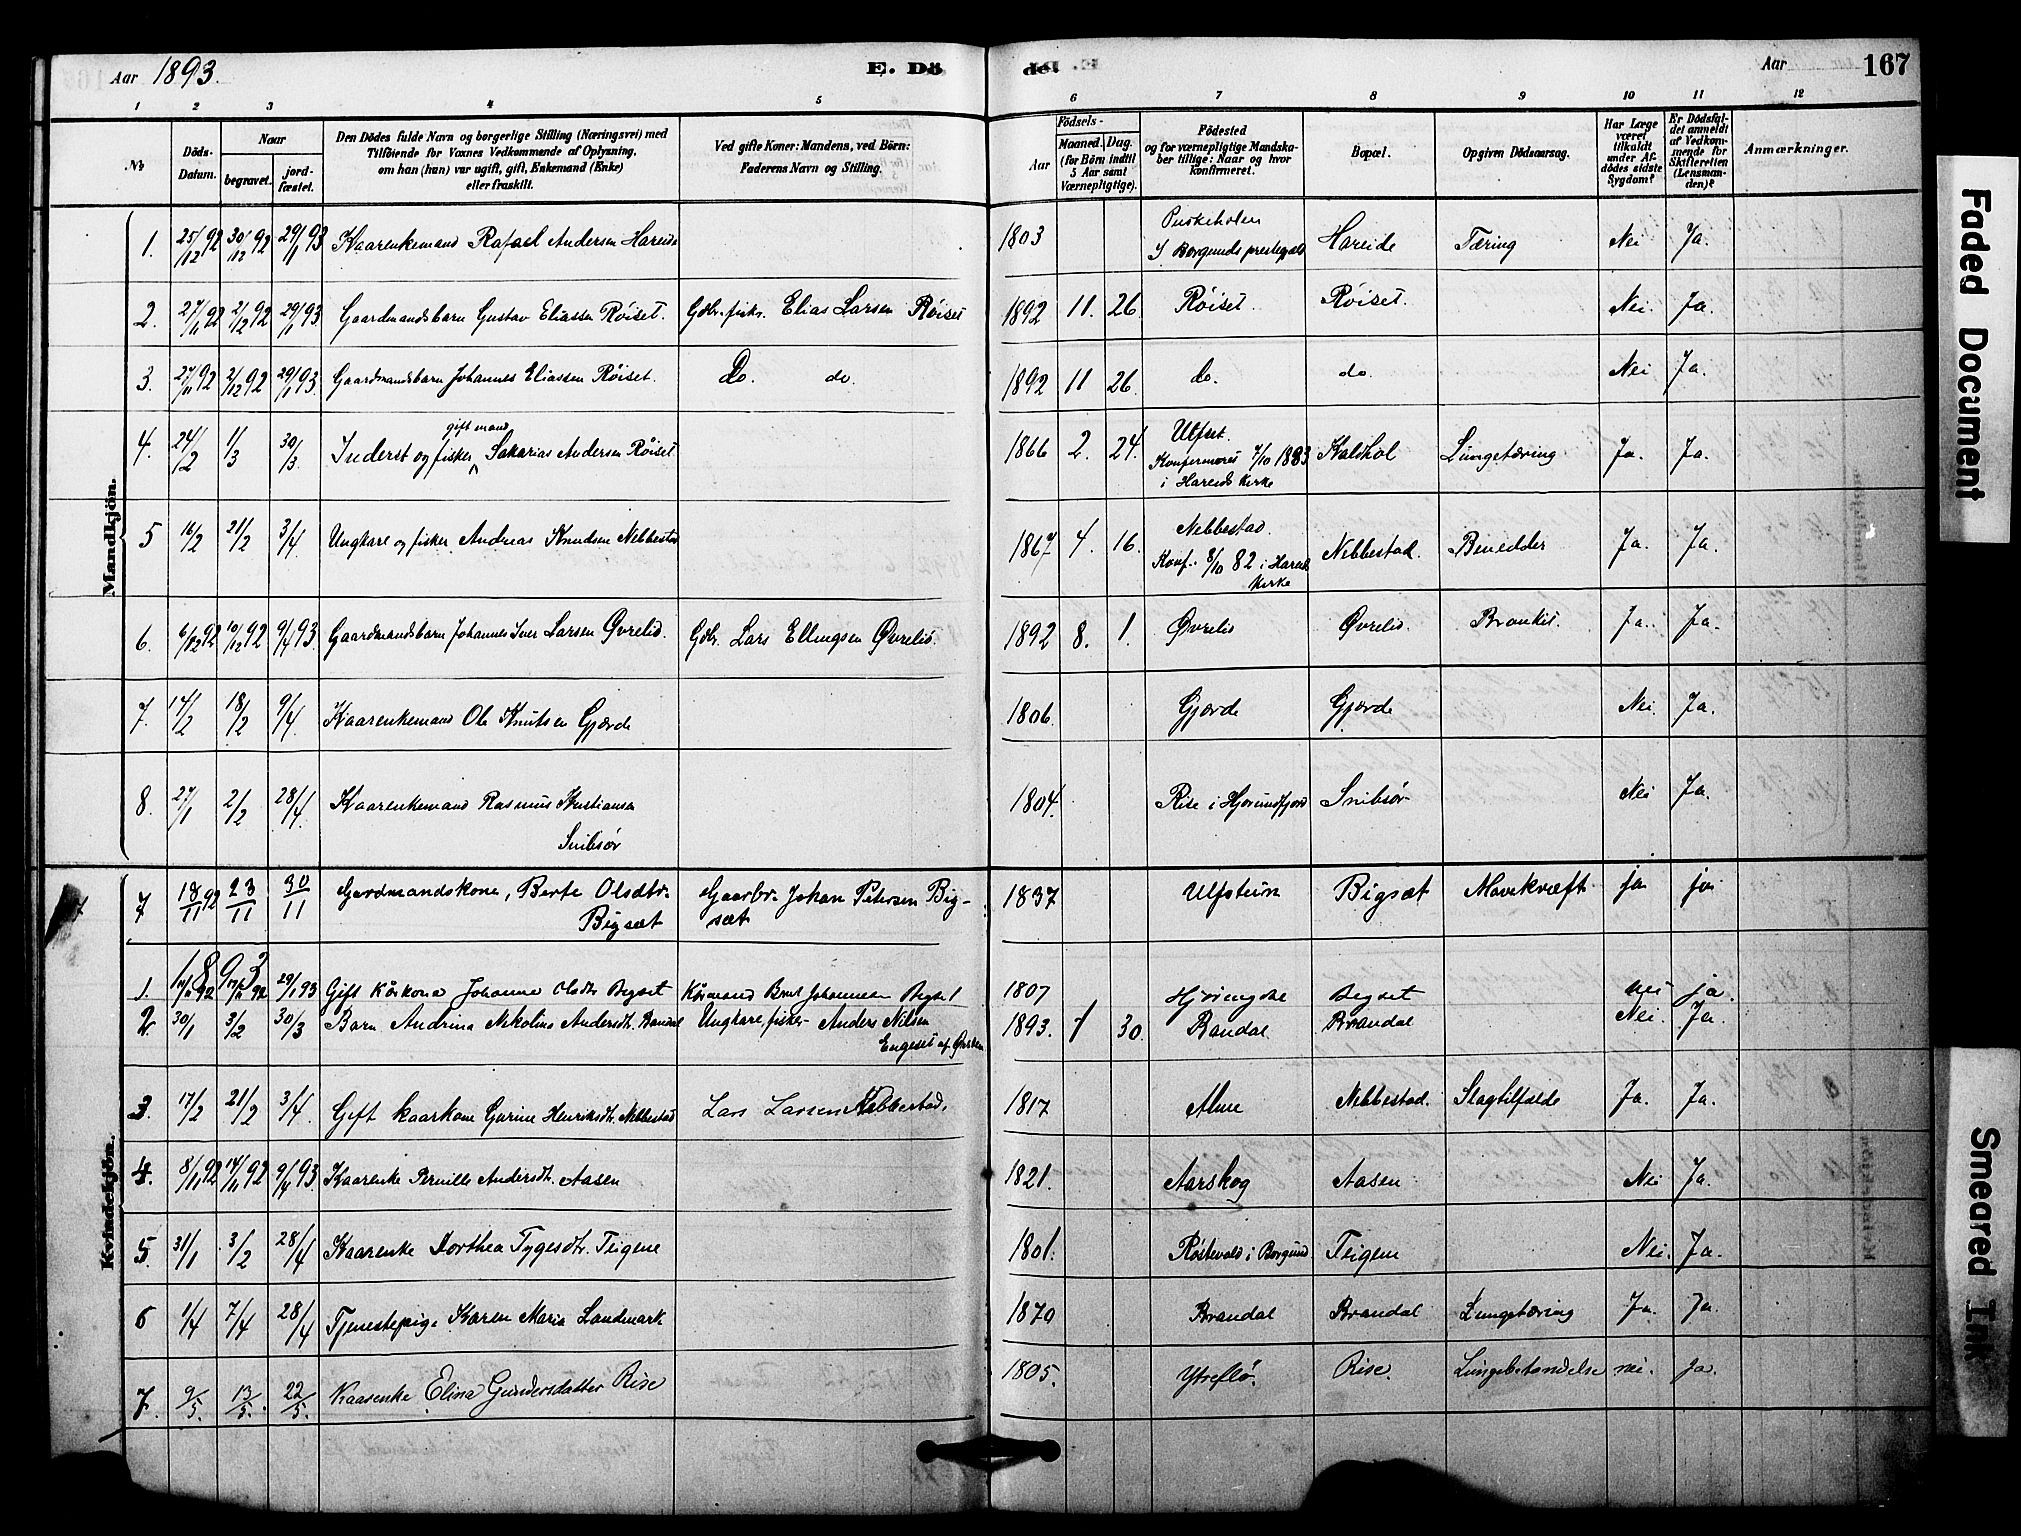 Aar 1893.
E. Dö
de.
Aar
167
1 2 3 4 5 6 7 8 9 10 11 12
№
Döds-
Datum.
Naar
begravet.
jord-
fæstet.
Den Dödes fulde Navn og borgerlige Stilling (Næringsvei) med
Tilföiende for Voxnes Vedkommende af Oplysning,
om han (hun) var ugift, gift, Enkemand (Enke)
eller fraskilt.
Ved gifte Koner: Mandens, ved Börn:
Faderens Navn og Stilling.
Födsels-
Aar
Maaned. Dag.
(for Börn indtil
5 Aar samt
Værnepligtige).
Födested
og for værnepligtige Mandska-
ber tillige: Naar og hvor
konfirmeret.
Bopæl.
Opgiven Dödsaarsag.
Har Læge
været
tilkaldt
under Af-
dödes sidste
Sygdom?
Er Dödsfal-
det anmeldt
af Vedkom-
mende for
Skifteretten
(Lensman-
den)?
Anmærkninger.
Mandkjön.
1. 25/12 92 30/12 92 29/1 93 Kaarenkemand Rafael Andersen Hareide 1803 Puskeholen
i Borgunds prestegjeld Hareide Tæring Nei Ja.
2. 27/11 92 2/12 92 29/1 93 Gaardmandsbarn Gustav Eliassen Röiset. Gdbr. fisk. Elias Larsen Röiset 1892 11. 26. Röiset. Röiset. Nei. Ja.
3. 27/11 92 2/12 92 29/1 93. Gaardmandsbarn Johannes Eliassen Röiset. Do. do. 1892 11 26. do. do. Nei Ja.
gift mand
4. 24/2 1/3 30/3. Inderst og fisker Sakarias Andersen Röiset 1866 2. 24. Ulfset.
Konfirmeret 7/10 1883
i Hareids kirke Kaldhol Lungetæring Ja. Ja.
5 16/2 21/2 3/4 Ungkare og fisker Andreas Knudsen Nebbestad 1867 4. 16. Nebbestad.
Konf. 8/10 82 i Hareids
kirke Nebbestad. Benedder Ja. Ja.
6. 6/12 92 10/12 92 9/4 93. Gaardmandsbarn Johannes Iver Larsen Øvrelid. Gdbr. Lars Ellingsen Øvrelid. 1892 8. 1. Øvrelid Øvrelid. Bronkit. Ja. Ja.
7. 14/2 18/2 9/4. Kaarenkemand Ole Knutsen Gjerde 1806. Gjerde Gjerde Nei. Ja.
8. 27/1 2/2 28/4. Kaarenkemand Rasmus Kristiansen
Snibsör 1804. Rise i Hjörundfjord Snibsör Nei Ja.
Kvindekjön.
7 18/11 92 23/11 30/11 Gardmandskone, Berte Olsdtr.
Bigsæt Gaarbr. Johan Petersen Big-
sæt 1837 Ulfstein Bigsæt Mavekræft ja ja
1893
1. 29/1 93 Gift kårkona Johanna Olsdtr Bigset Kårmand Johannesen Bigset 1807 Bigset nei ja.
2. 30/1 3/2 30/3 Barn Andrina Nikolina Andersdt. Brandal Ungkare, fisker Anders Nilsen
Engeset af Ørsten 1893. 1 30. Brandal Brandal Nei. Ja.
3. 17/2 21/2 3/4 Gift kaarkone Gurine Henriksdt. Nebbestad Lars Larsen Nebbestad. 1817 Alme Nebbestad. Slagtilfælde Ja. Ja.
4. 8/11 92 14/11 92 9/4 93. Kaarenke Pernille Andersdt. Aasen 1821. Aarskog Aasen Nei Ja.
5. 31/1 3/2 28/4 Kaarenke Dorthea Tygesdtr. Teigene 1801. Röstevold i Borgund Teigene Nei. Ja.
6 1/4 7/4 28/4 Tjenestepige Karen Maria Landmark 1870 Brandal Brandal Lungetæring Ja. Ja.
7. 9/5. 13/5. 22/5. Kaarenke Elina Gundersdatter Rise 1805. Ytreflö. Rise. Lungebetændelse nei. ja.
Faded Document
Smeared Ink